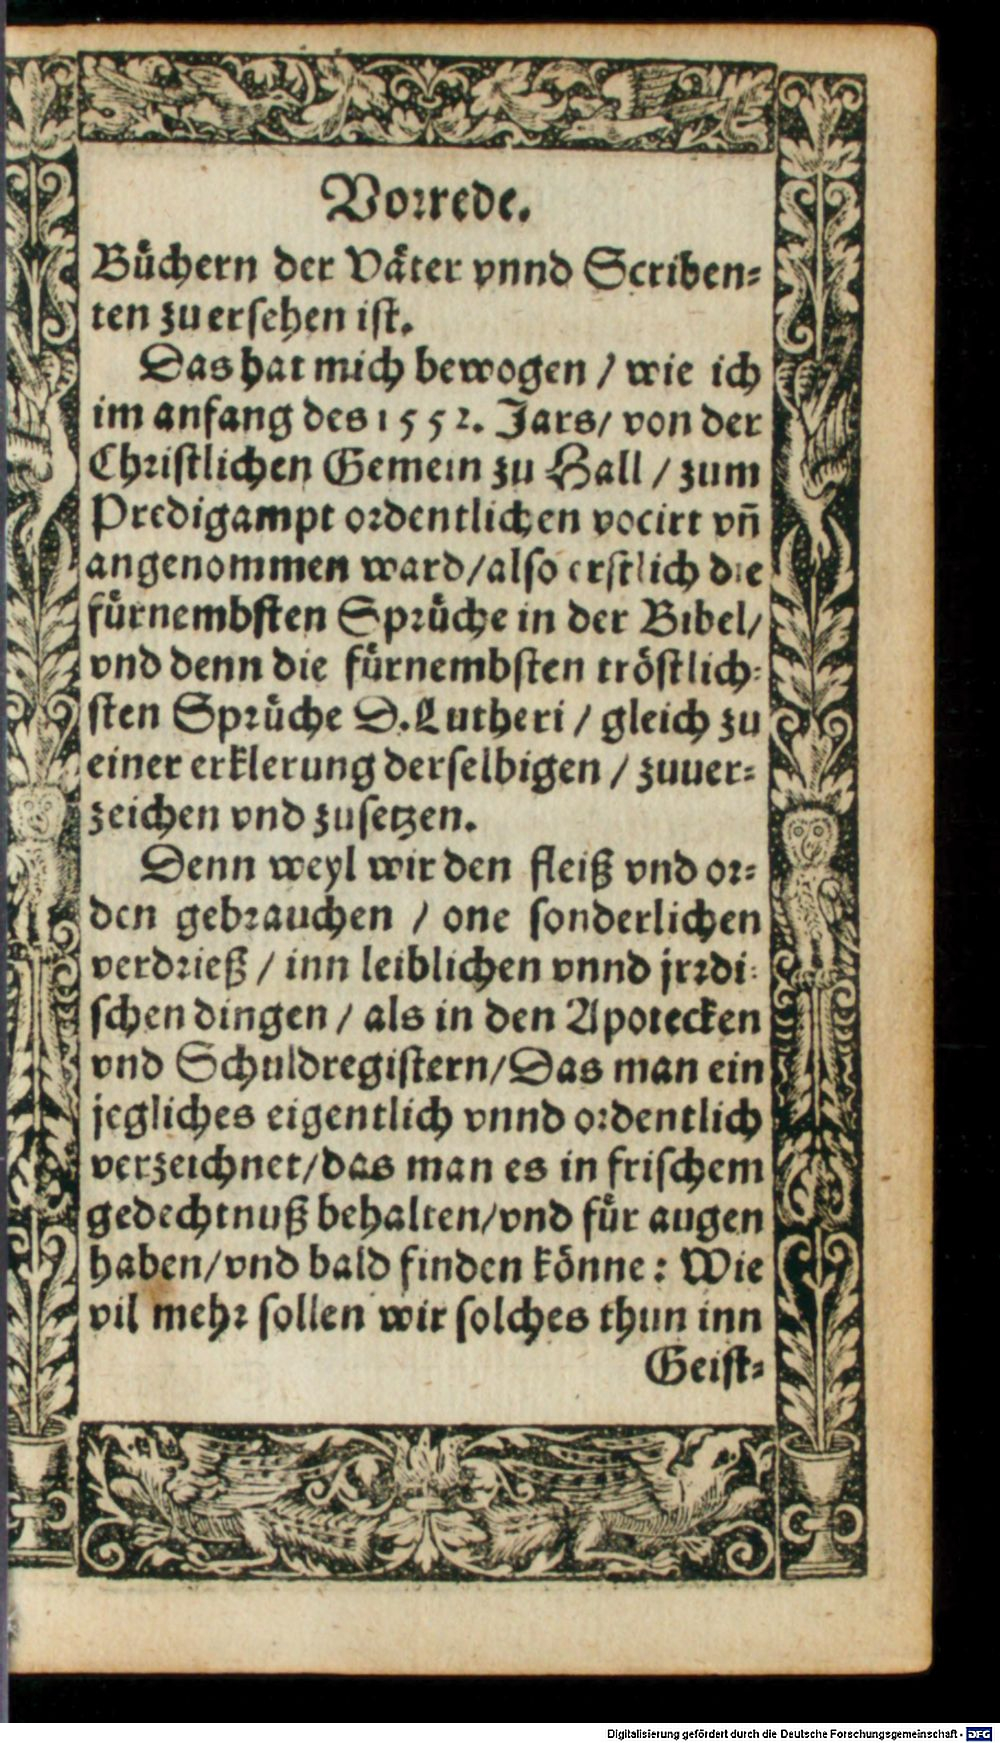 Vorrede.
Bůchern der Våter vnnd Scriben⸗
ten zu ersehen ist.
Das hat mich bewogen / wie ich
im anfang des 1552. Jars/ von der
Christlichen Gemein zu Hall / zum
Predigampt ordentlichen vocirt vñ
angenommen ward/also erstlich die
fůrnembsten Sprůche in der Bibel/
vnd denn die fůrnembsten tröstlich⸗
sten Sprůche D.Lutheri / gleich zu
einer erklerung derselbigen / zuuer⸗
zeichen vnd zusetzen.
Denn weyl wir den fleiß vnd or⸗
den gebrauchen / one sonderlichen
verdrieß / inn leiblichen vnnd jrrdi⸗
schen dingen / als in den Apotecken
vnd Schuldregistern/Das man ein
jegliches eigentlich vnnd ordentlich
verzeichnet/das man es in frischem
gedechtnuß behalten/vnd fůr augen
haben/vnd bald finden könne: Wie
vil mehr sollen wir solches thun inn
Geist⸗
Digitalisierung gefördert durch die Deutsche Forschungsgemeinschaft - DFG